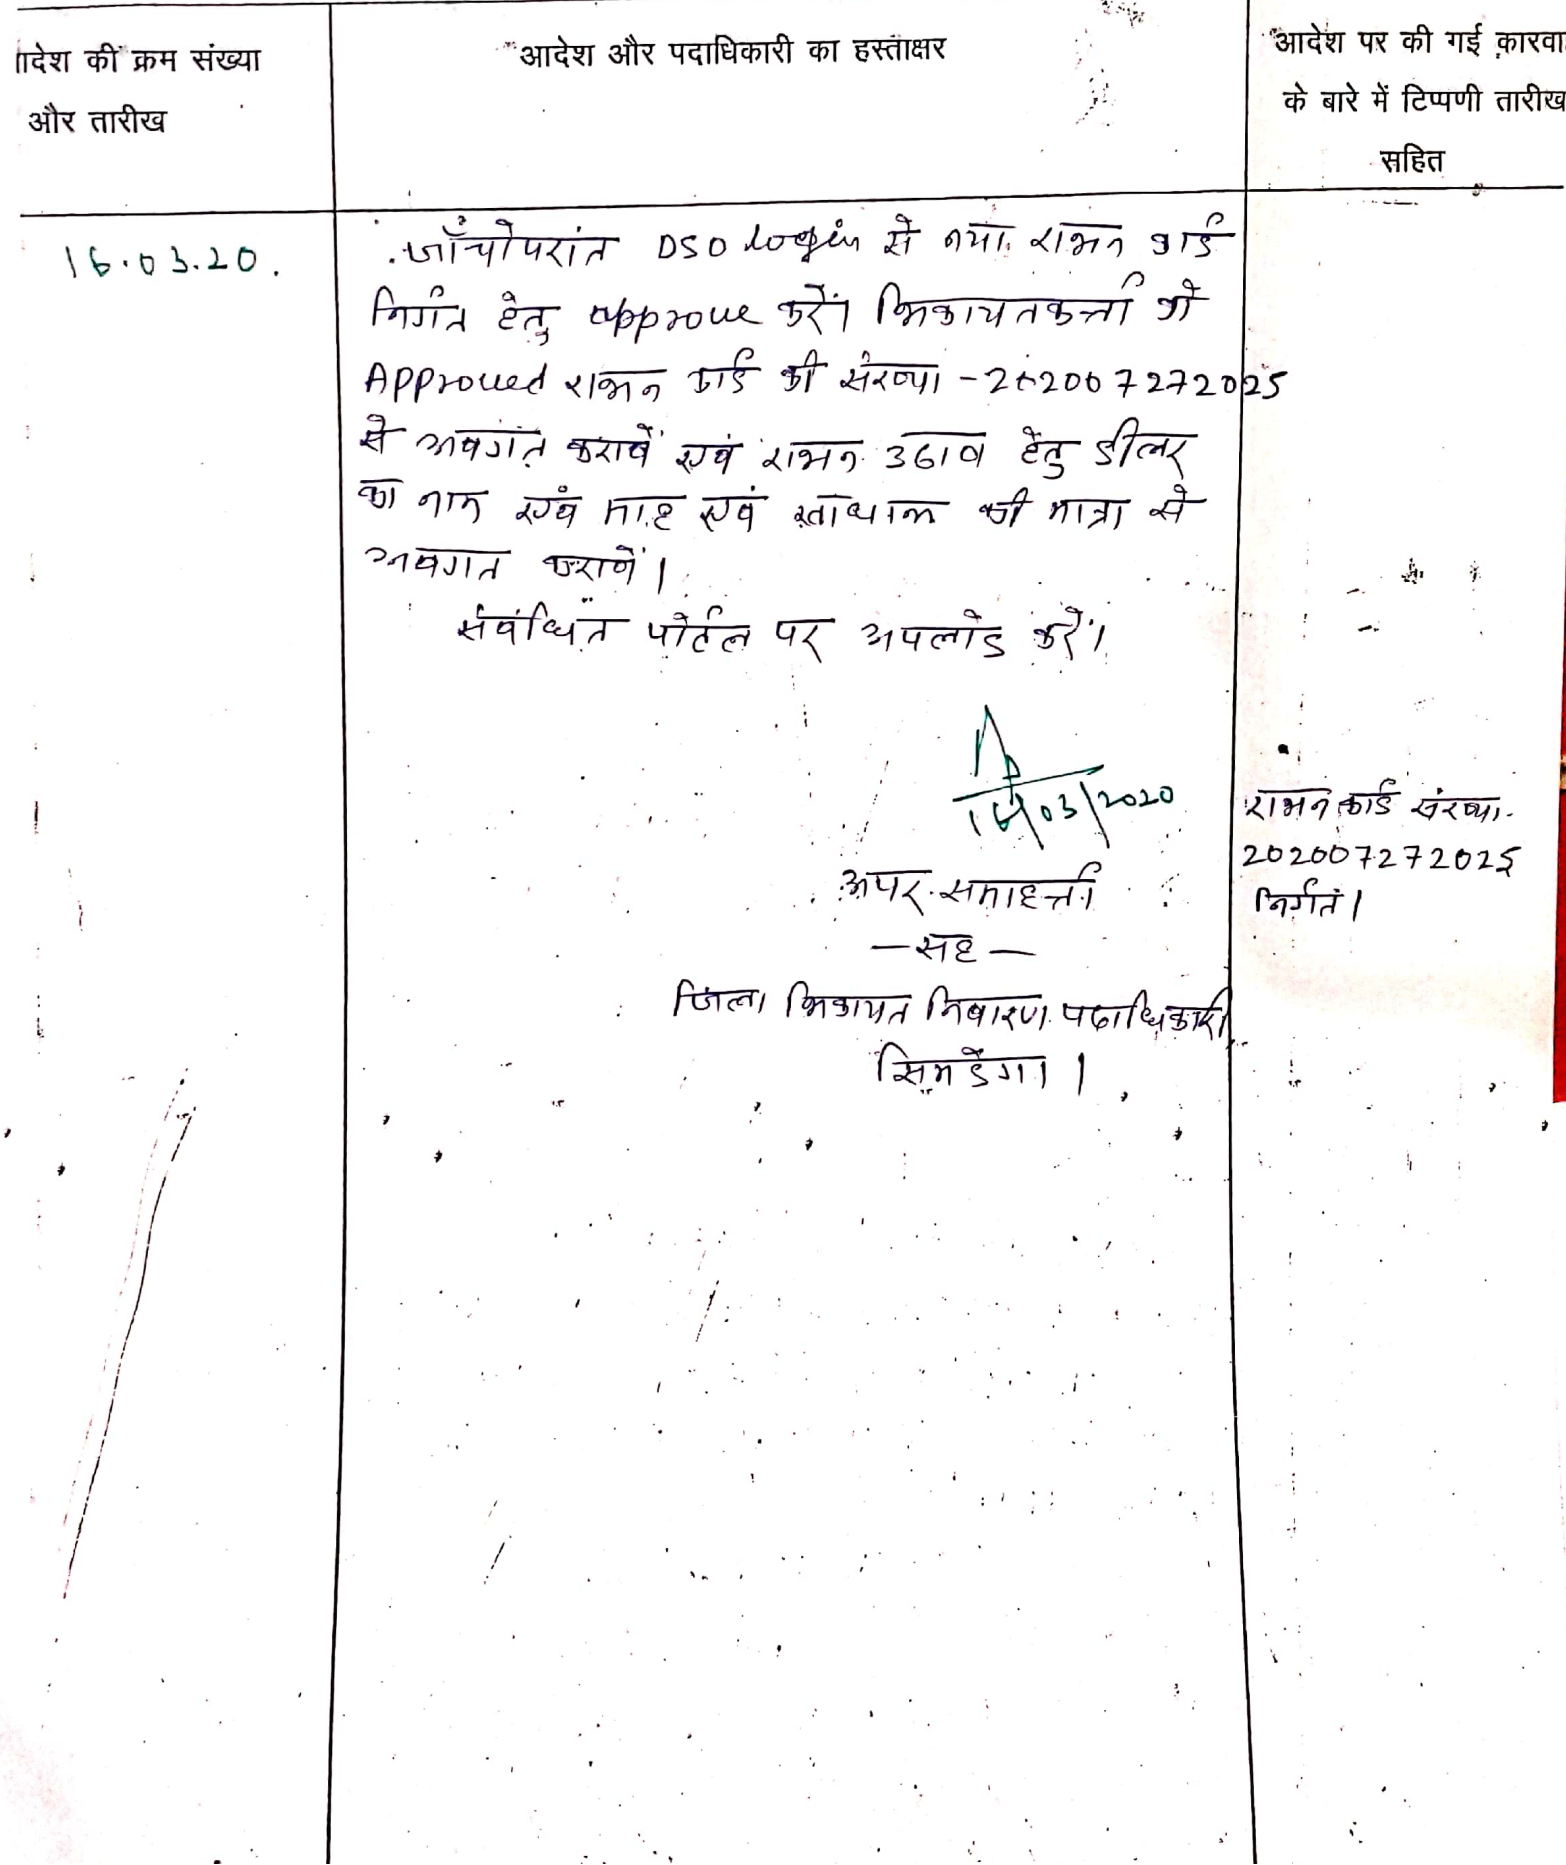 ादेश की क्रम संख्या
और तारीख
आदेश और पदाधिकारी का हस्ताक्षर
आदेश पर की गई कारवा
के बारे में टिप्पणी तारीख
सहित
16.03.20.
जाँचोपरांत DSO login से नया राशन कार्ड
निर्गत हेतु approve करें। शिकायतकर्त्ता को
Approved राशन कार्ड की संख्या - 202007272025
से अवगत करावें एवं राशन उठाव हेतु डीलर
का नाम एवं माह एवं खाद्यान्न की मात्रा से
अवगत करावें।
संबंधित पोर्टल पर अपलोड करें।
/03/2020
अपर समाहर्त्ता
– सह –
जिला शिकायत निवारण पदाधिकारी
सिमडेगा।
राशन कार्ड संख्या-
202007272025
निर्गत।